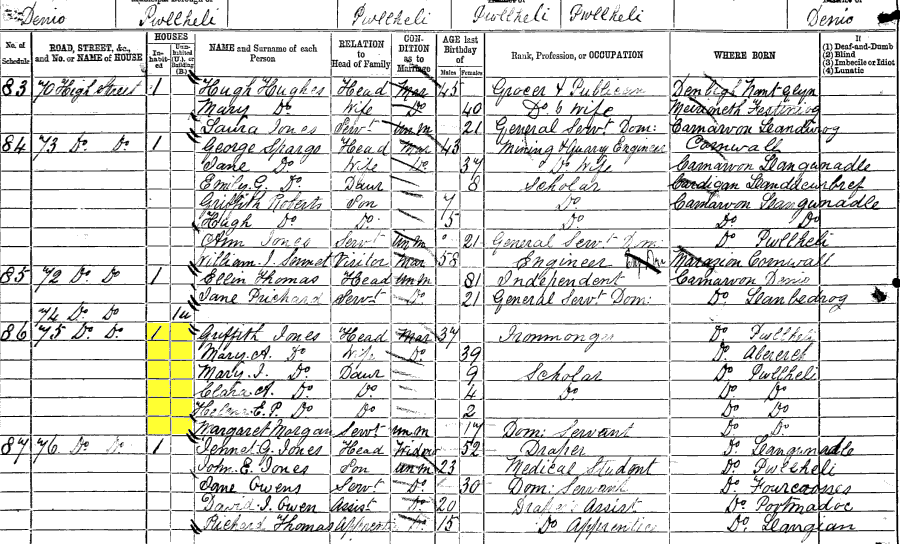 Denio Pwllheli Pwllheli Pwllheli Pwllheli Denio
No. of Schedule ROAD, STREET, &c., and No. or NAME of HOUSE HOUSES Inhabited Uninhabited (U.), or Building (B.) NAME and Surname of each Person RELATION to Head of Family CONDITION as to Marriage AGE last Birthday of Males Females Rank, Profession, or OCCUPATION WHERE BORN If (1) Deaf-and-Dumb (2) Blind (3) Imbecile or Idiot (4) Lunatic
83 70 High Street 1 Hugh Hughes Head Mar 45 Grocer & Publican Denbigh Nantglyn
Mary Do Wife Do 40 Do's Wife Merioneth Festiniog
Laura Jones Servt Unm 21 General Servt Dom: Carnarvon Llandwrog
84 73 Do Do 1 George Spargo Head Mar 43 Mining Quarry Engineer Cornwall
Jane Do Wife Do 37 Do Wife Carnarvon Llangwnadle
Emily G. Do Daur 8 Scholar Cardigan
Griffith Roberts Son 7 Do Carnarvon Llangwnadle
Hugh Do Do 5 Do Do Do
Ann Jones Servt Unm 21 General Servt Dom: Do Pwllheli
William J. Visitor Mar 58 Engineer Marazion Cornwall
85 72 Do Do 1 Ellin Thomas Head Unm 81 Independent Carnarvon Denio
Jane Prichard Servt Do 21 General Servt Dom: Do Llanbedrog
74 Do Do 1u
86 75 Do Do 1 Griffith Jones Head Mar 37 Ironmonger Do Pwllheli
Mary A. Do Wife Do 39 Do Abererch
Mary J. Do Daur 9 Scholar Do Pwllheli
Clara A. Do Do 4 Do Do Do
Helena E. P. Do Do 2 Do Do
Margaret Morgan Servt Unm 17 Dom: Servant Do Do
87 76 Do Do 1 Jennet G. Jones Head Widow 52 Draper Do Llangwnadle
John E. Jones Son Unm 23 Medical Student Do Pwllheli
Jane Owens Servt Do 30 Dom: Servant Do Fourcrosses
David J. Owen Assist Do 20 Drapers Assist Do Portmadoc
Richard Thomas Apprentice Do 15 Do Apprentice Do Llangian